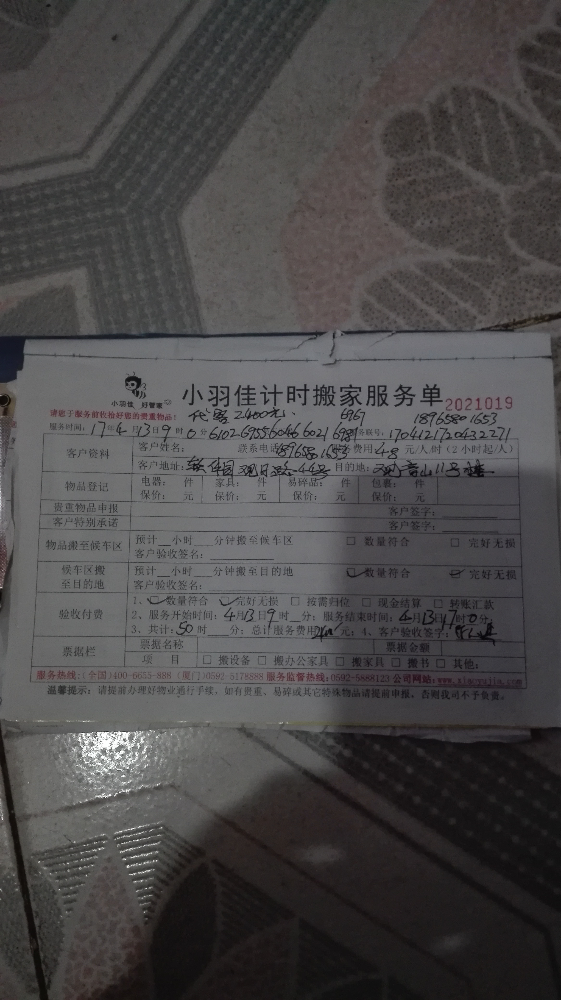 小羽佳 好管家
小羽佳计时搬家服务单 2021019
请您于服务前收拾好您的贵重物品: 代客2400元. 6967 18965801653
服务时间: 17年4月13日9时0分 6102 6755 6046 6021 6981 务联号: 1704121720432271
客户资料 客户姓名: 联系电话 费用48元/人.时(2小时起/人)
客户地址: 软件园观日路44号 目的地: 观音山11号楼
物品登记 电器: 件 家具: 件 易碎品: 件 包裹: 件
保价: 元 保价: 元 保价: 元 保价: 元
贵重物品申报 客户签字:
客户特别承诺 客户签字:
物品搬至候车区 预计__小时__分钟搬至候车区 □ 数量符合 □ 完好无损
客户验收签名:
候车区搬至目的地 预计__小时__分钟搬至目的地 数量符合 完好无损
客户验收签名:
验收付费 1、数量符合 完好无损 □ 按需归位 □ 现金结算 □ 转账汇款
2、服务开始时间: 4月13日9时__分; 服务结束时间: 4月13日17时0分
3、共计: 50时__分; 总计服务费用 元; 4、客户验收签字:
票据栏 票据名称 票据金额
项 目 □ 搬设备 □ 搬办公家具 □ 搬家具 □ 搬书 □ 其他:
服务热线:(全国)400-6653-888 (厦门)0592-5178888 服务监督热线:0592-5888123 公司网站:www.xiaoyujia.com
温馨提示: 请提前办理好物业通行手续, 如有贵重、易碎或其它特殊物品请提前申报, 否则我司不予负责。